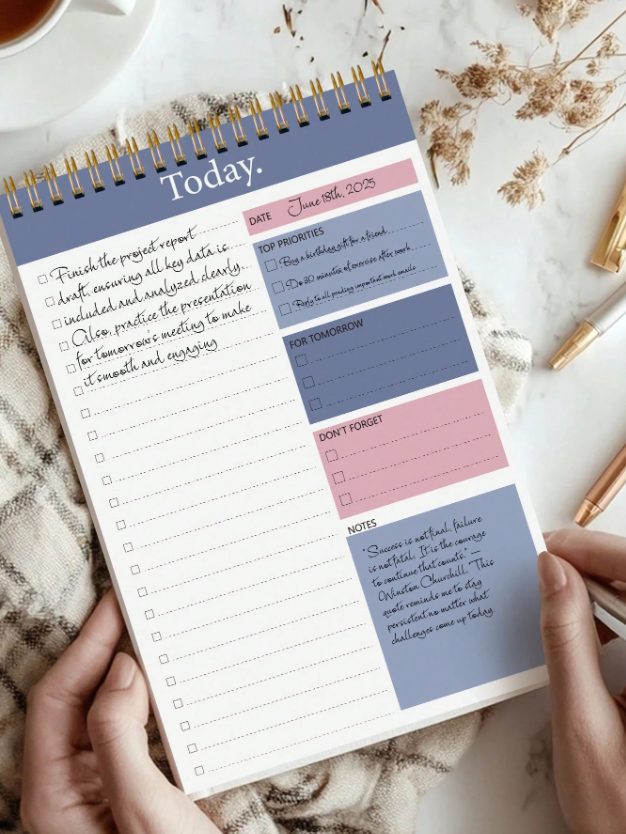 Today.
Finish the project report
draft, ensuring all key data is
included and analyzed clearly.
Also, practice the presentation
for tomorrow's meeting to make
it smooth and engaging
DATE June 18th, 2025
TOP PRIORITIES
Buy a birthday gift for a friend
Do 30 minutes of exercise after work
Reply to all pending important work emails
FOR TOMORROW
DON'T FORGET
NOTES
"Success is not final, failure
is not fatal: It is the courage
to continue that counts." —
Winston Churchill. This
quote reminds me to stay
persistent no matter what
challenges come up today.